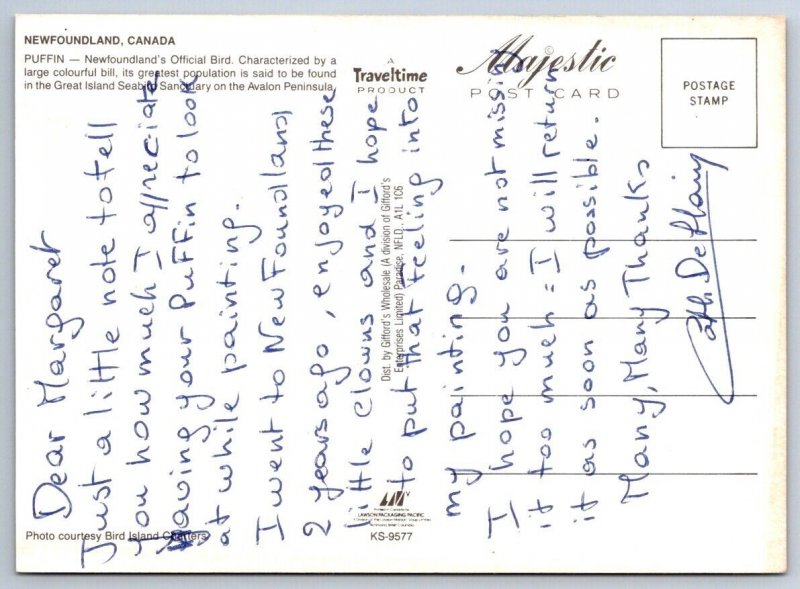 NEWFOUNDLAND, CANADA
PUFFIN — Newfoundland's Official Bird. Characterized by a
large colourful bill, its greatest population is said to be found
in the Great Island Seabird Sanctuary on the Avalon Peninsula.
A
Traveltime
PRODUCT
Majestic
POST CARD
POSTAGE
STAMP
Dear Margaret
Just a little note to tell
you how much I appreciate
having your Puffin to look
at while painting.
I went to Newfoundland
2 years ago, enjoyed these
little clowns and I hope
to put that feeling into
my painting.
I hope you are not missing
it too much = I will return
it as soon as possible.
Many, Many Thanks
Dist. by Gifford's Wholesale (A division of Gifford's
Enterprises Limited) Paradise, NFLD., A1L 1C6
LAWSON PACKAGING PACIFIC
KS-9577
Photo courtesy Bird Island Charters